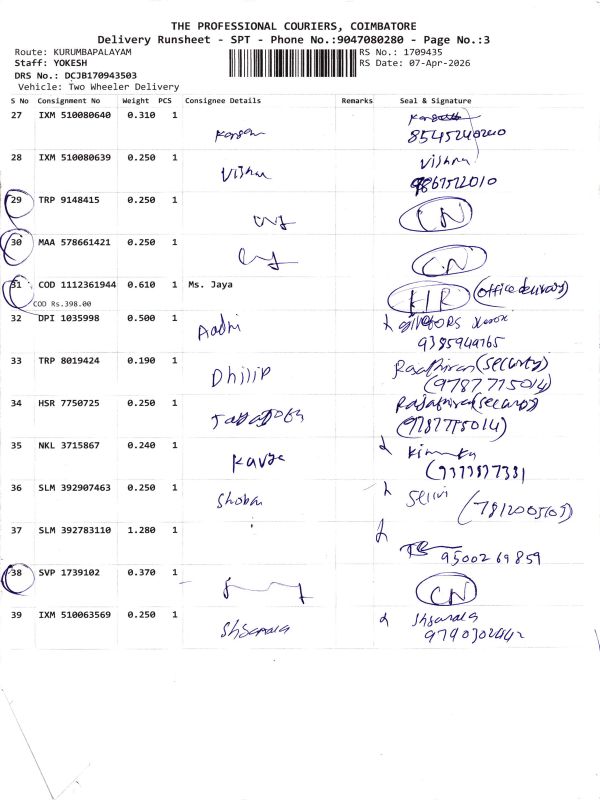 THE PROFESSIONAL COURIERS, COIMBATORE
Delivery Runsheet - SPT - Phone No.:9047080280 - Page No.:3
Route: KURUMBAPALAYAM
RS No.: 1709435
Staff: YOKESH
RS Date: 07-Apr-2026
DRS No.: DCJB170943503
Vehicle: Two Wheeler Delivery
S No Consignment No Weight PCS Consignee Details Remarks Seal & Signature
27 IXM 510080640 0.310 1
28 IXM 510080639 0.250 1 Vishnu Vishnu
29 TRP 9148415 0.250 1 CN
30 MAA 578661421 0.250 1 CN
31 COD 1112361944 0.610 1 Ms. Jaya (office delivery)
COD Rs.398.00
32 DPI 1035998 0.500 1 Aadhi
9385949765
33 TRP 8019424 0.190 1 Dhilip (Security)
(9787775014)
34 HSR 7750725 0.250 1
(9787775014)
35 NKL 3715867 0.240 1
36 SLM 392907463 0.250 1 Shoba Selvi
37 SLM 392783110 1.280 1
9500269859
38 SVP 1739102 0.370 1 CN
39 IXM 510063569 0.250 1
9790302442